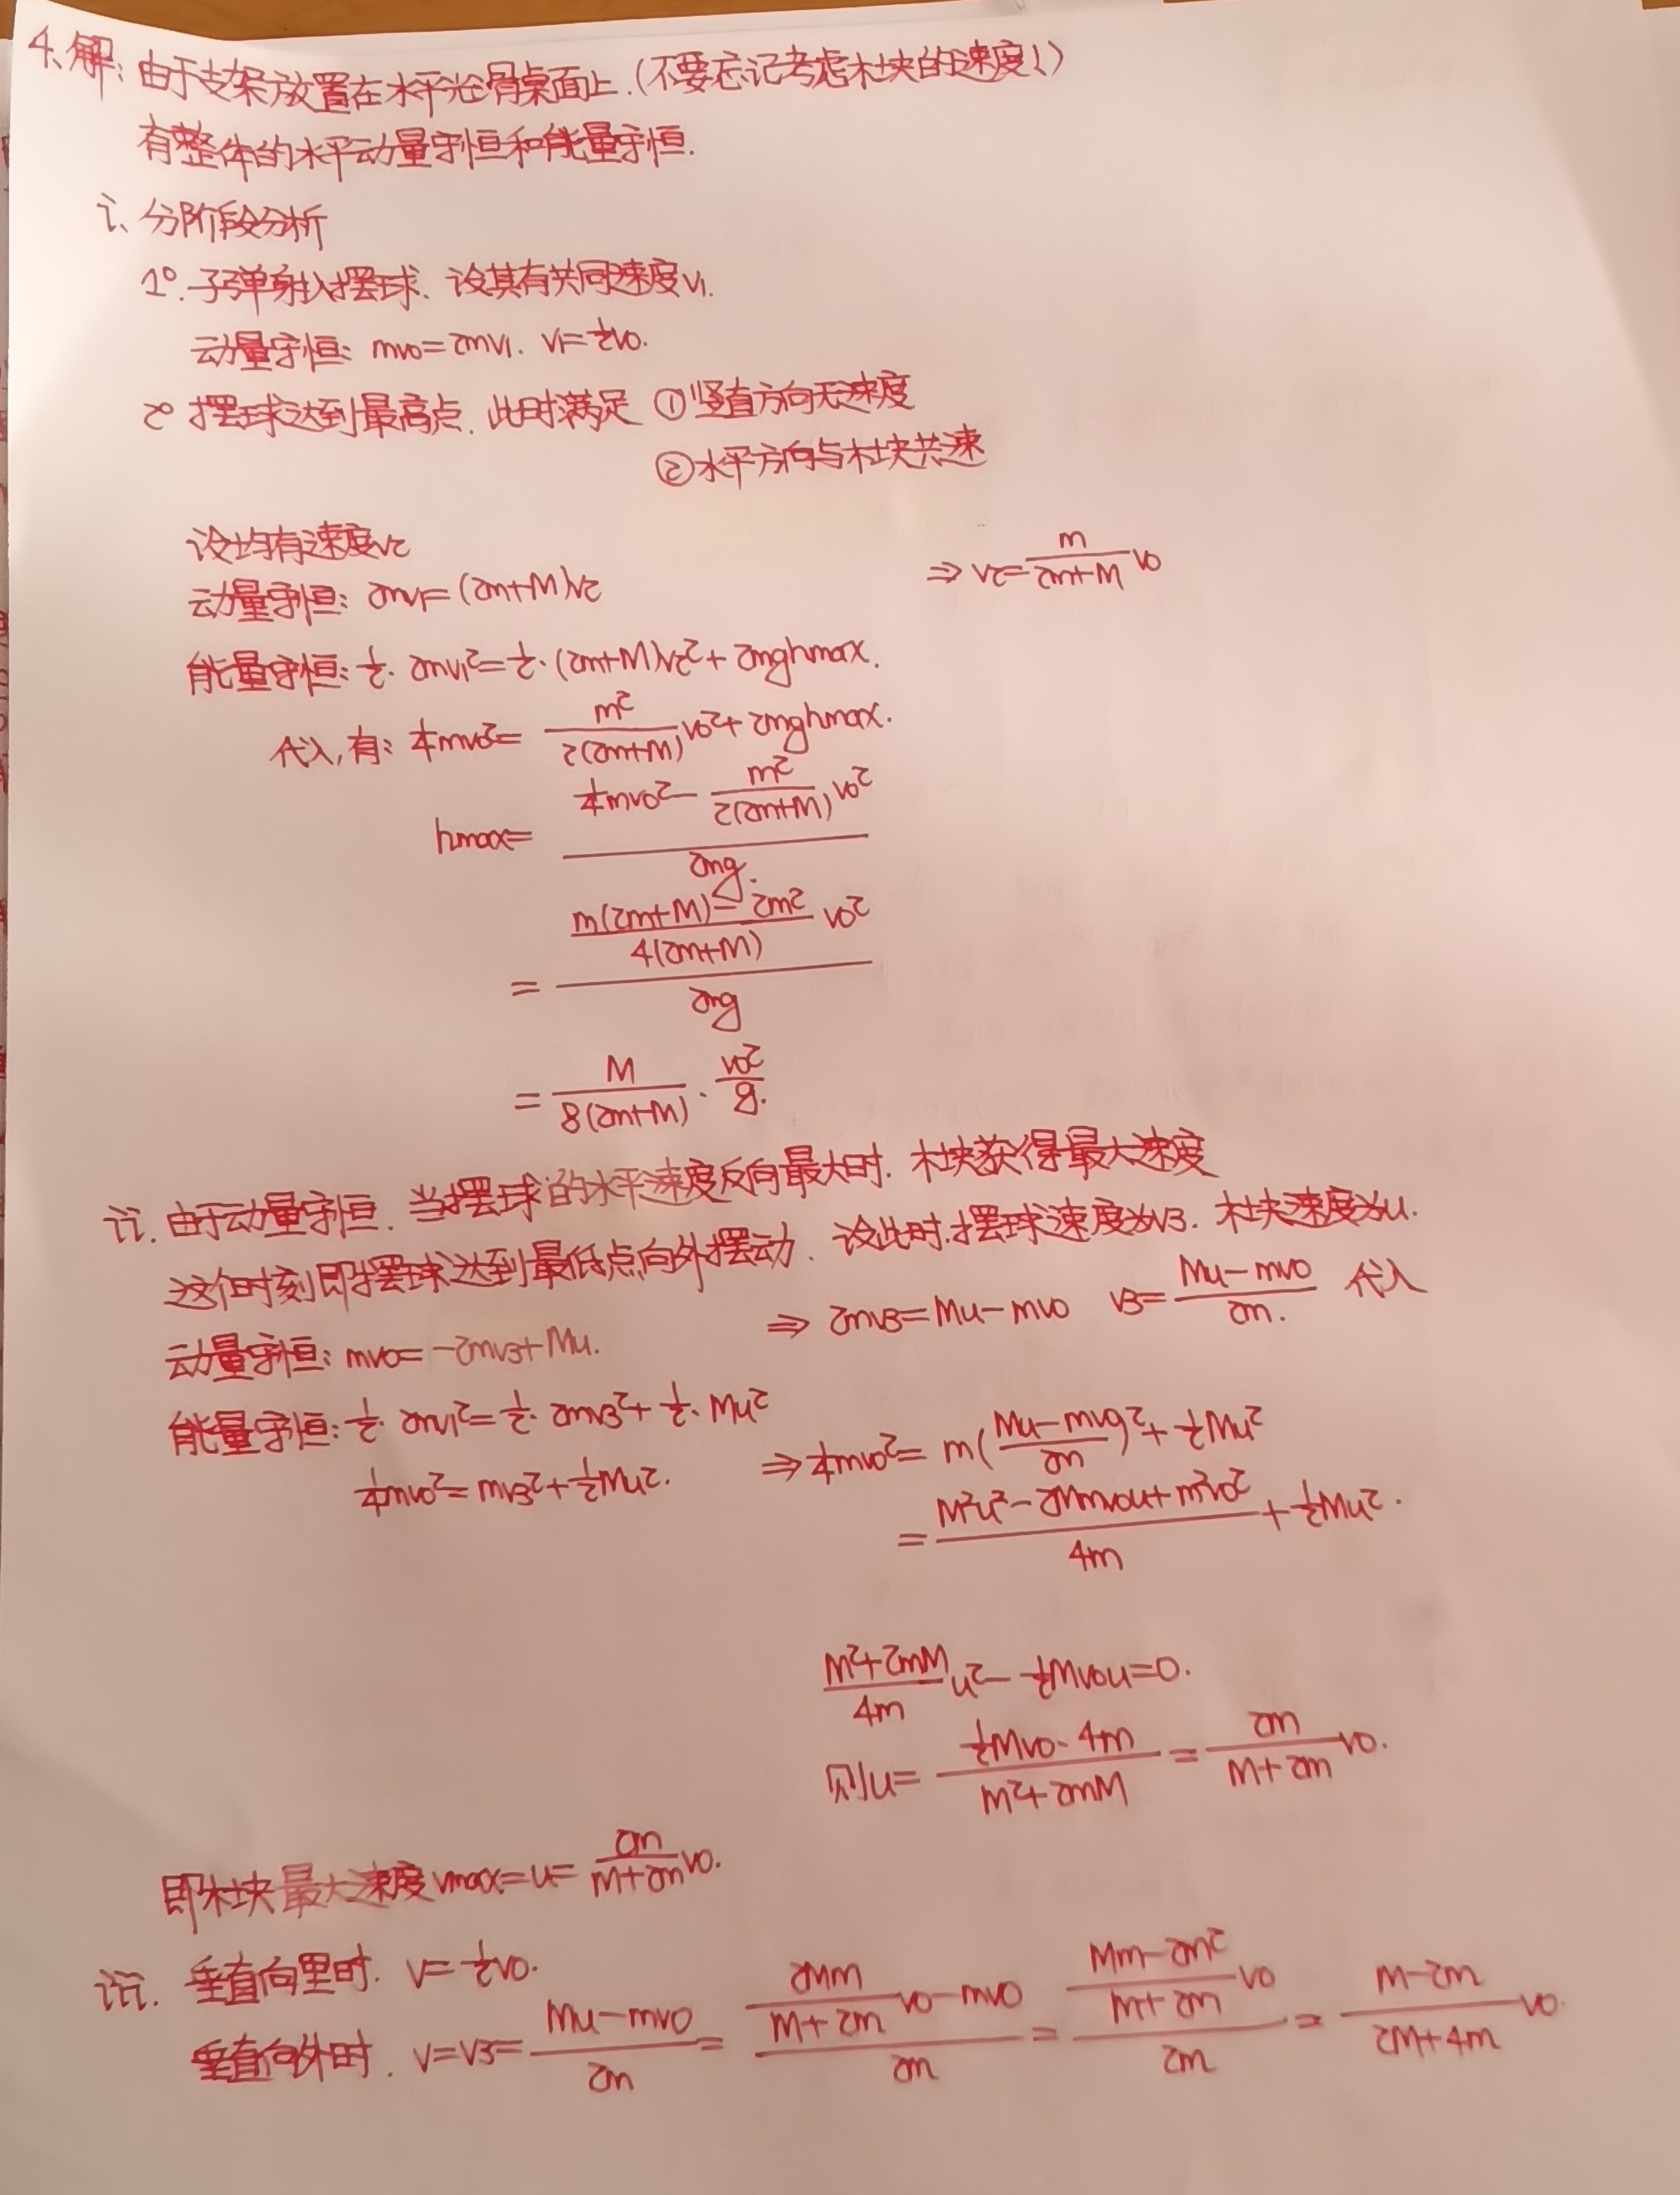 4、解：由于支架放置在水平光滑桌面上.(不要忘记考虑木块的速度！)
有整体的水平动量守恒和能量守恒.
i、分阶段分析
1°.子弹射入摆球、设其有共同速度v₁.
动量守恒：mv₀=2mv₁. v₁=½v₀.
2° 摆球达到最高点.此时满足 ①竖直方向无速度
②水平方向与木块共速
设均有速度v₂
动量守恒：2mv₁=(2m+M)v₂ ⇒ v₂=\frac{m}{2m+M}v₀
能量守恒：½·2mv₁²=½·(2m+M)v₂²+2mghmax.
代入,有：¼mv₀²=\frac{m²}{2(2m+M)}v₀²+2mghmax.
hmax=\frac{¼mv₀²-\frac{m²}{2(2m+M)}v₀²}{2mg.}
=\frac{\frac{m(2m+M)-2m²}{4(2m+M)}v₀²}{2mg}
=\frac{M}{8(2m+M)}·\frac{v₀²}{g.}
ii.由于动量守恒.当摆球的水平速度反向最大时.木块获得最大速度
这个时刻即摆球达到最低点向外摆动.设此时.摆球速度为v₃.木块速度为u.
动量守恒：mv₀=-2mv₃+Mu. ⇒ 2mv₃=Mu-mv₀ v₃=\frac{Mu-mv₀}{2m.} 代入
能量守恒：½·2mv₁²=½·2mv₃²+½·Mu²
¼mv₀²=mv₃²+½Mu². ⇒¼mv₀²=m(\frac{Mu-mv₀}{2m})²+½Mu²
=\frac{M²u²-2Mmv₀u+m²v₀²}{4m}+½Mu².
\frac{M²+2mM}{4m}u²-½Mv₀u=0.
则u=\frac{½Mv₀·4m}{M²+2mM}=\frac{2m}{M+2m}v₀.
即木块最大速度vmax=u=\frac{2m}{M+2m}v₀.
iii.垂直向里时.v=½v₀.
垂直向外时.v=v₃=\frac{Mu-mv₀}{2m}=\frac{\frac{2Mm}{M+2m}v₀-mv₀}{2m}=\frac{\frac{Mm-2m²}{M+2m}v₀}{2m}=\frac{M-2m}{2M+4m}v₀.